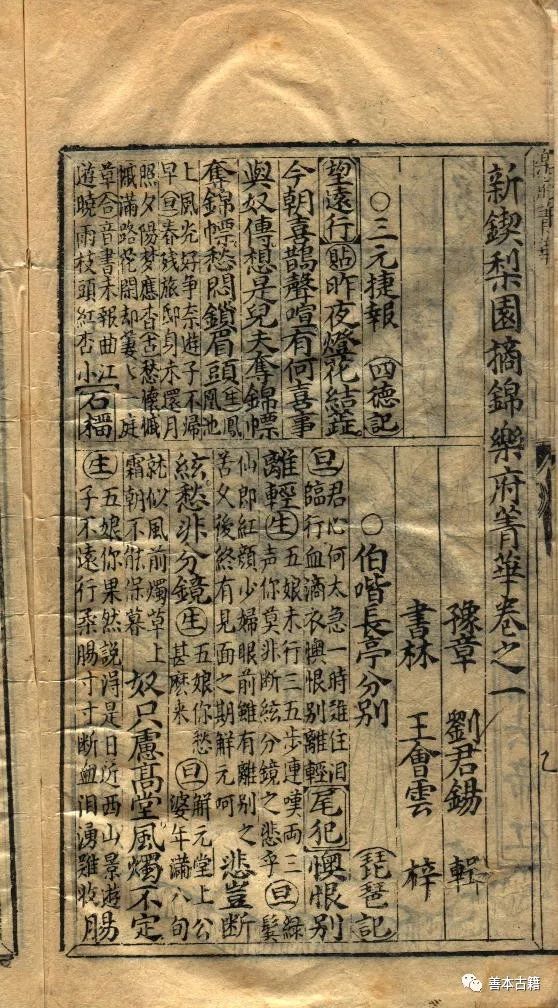 新鍥梨園摘錦樂府菁華卷之一
豫章 劉君錫 輯
書林 王會雲 梓
○三元捷報 四德記
望遠行 貼 昨夜燈花結蕋
今朝喜鵲聲喧有何喜事
與奴傳想是兒夫奪錦幖
奪錦幖愁悶鎖眉頭 生 鳳凰池
上風光好爭奈遊子不歸
早 旦 春残旅邸身未還月
照夕陽梦應杳愁懷慽
慽滿路花開却萋萋一庭
草合音書未報曲江
遊曉雨枝頭紅杏小 石榴
○伯喈長亭分别 琵琶記
旦 君心何太急一時難住泪
臨行血滴衣懊恨别離輕 尾犯 懊恨别
離輕 生 五娘未行三五步連嘆両三
声你莫非断絃分鏡之悲乎 旦 緑鬢
仙郎紅顔少婦眼前雖有離别之
苦久後終有見面之期解元呵 悲豈断
絃愁非分鏡 生 五娘你愁甚麽来 旦 解元堂上公婆年滿八旬
就似風前燭草上霜朝不能保暮 奴只慮髙堂風燭不定
生 五娘你果然說得是日近西山景遊
子不遠行柔腸寸寸断血泪湧難收 腸
善本古籍